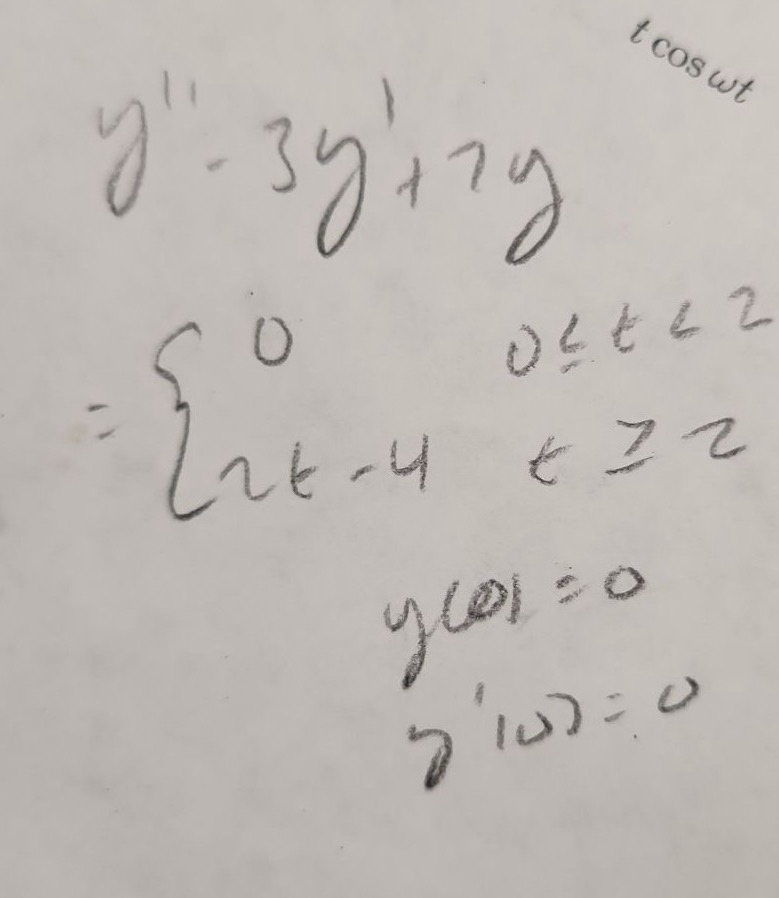 t cos ωt
y'' - 3y' + 7y
= { 0 0 ≤ t < 2
2t - 4 t ≥ 2
y(0) = 0
y'(0) = 0